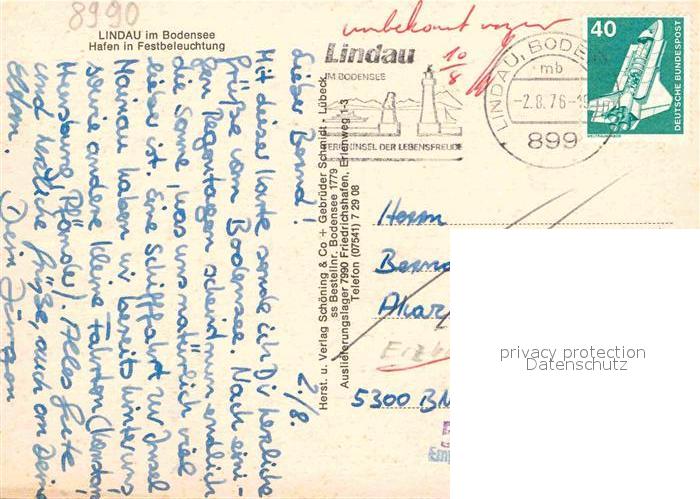 8990
LINDAU im Bodensee
Hafen in Festbeleuchtung
unbekannt
10/8
Lindau
IM BODENSEE
FERIENINSEL DER LEBENSFREUDE
LINDAU, BODENSEE
mb
-2.8.76-
899
40
DEUTSCHE BUNDESPOST
2/8.
Lieber Bernd!
Mit dieser Karte sende ich Dir herzliche
Grüße vom Bodensee. Nach eini-
gen Regentagen scheint nun endlich
die Sonne, was natürlich viel
schöner ist. Eine Schiffahrt zur Insel
Mainau haben wir bereits hinter uns
sowie andere kleine Fahrten (Konstanz,
Pfänder). Alles Gute
und herzliche Grüße, auch an Deine
Eltern. Dein Jürgen
Herst. u. Verlag Schöning & Co + Gebrüder Schmidt · Lübeck
ss Bestellnr. Bodensee 1779
Auslieferungslager 7990 Friedrichshafen, Erlenweg 1-3
Telefon (07541) 7 29 08
Herrn
Bernd
5300
privacy protection
Datenschutz